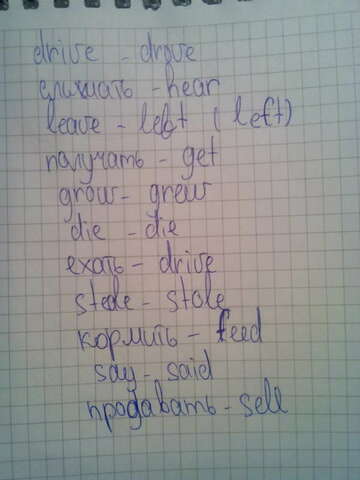 drive - drove
слышать - hear
leave - left (left)
палучать - get
grow - grew
die - die
ехать - drive
stele - stole
кормить - feed
say - said
продавать - sell